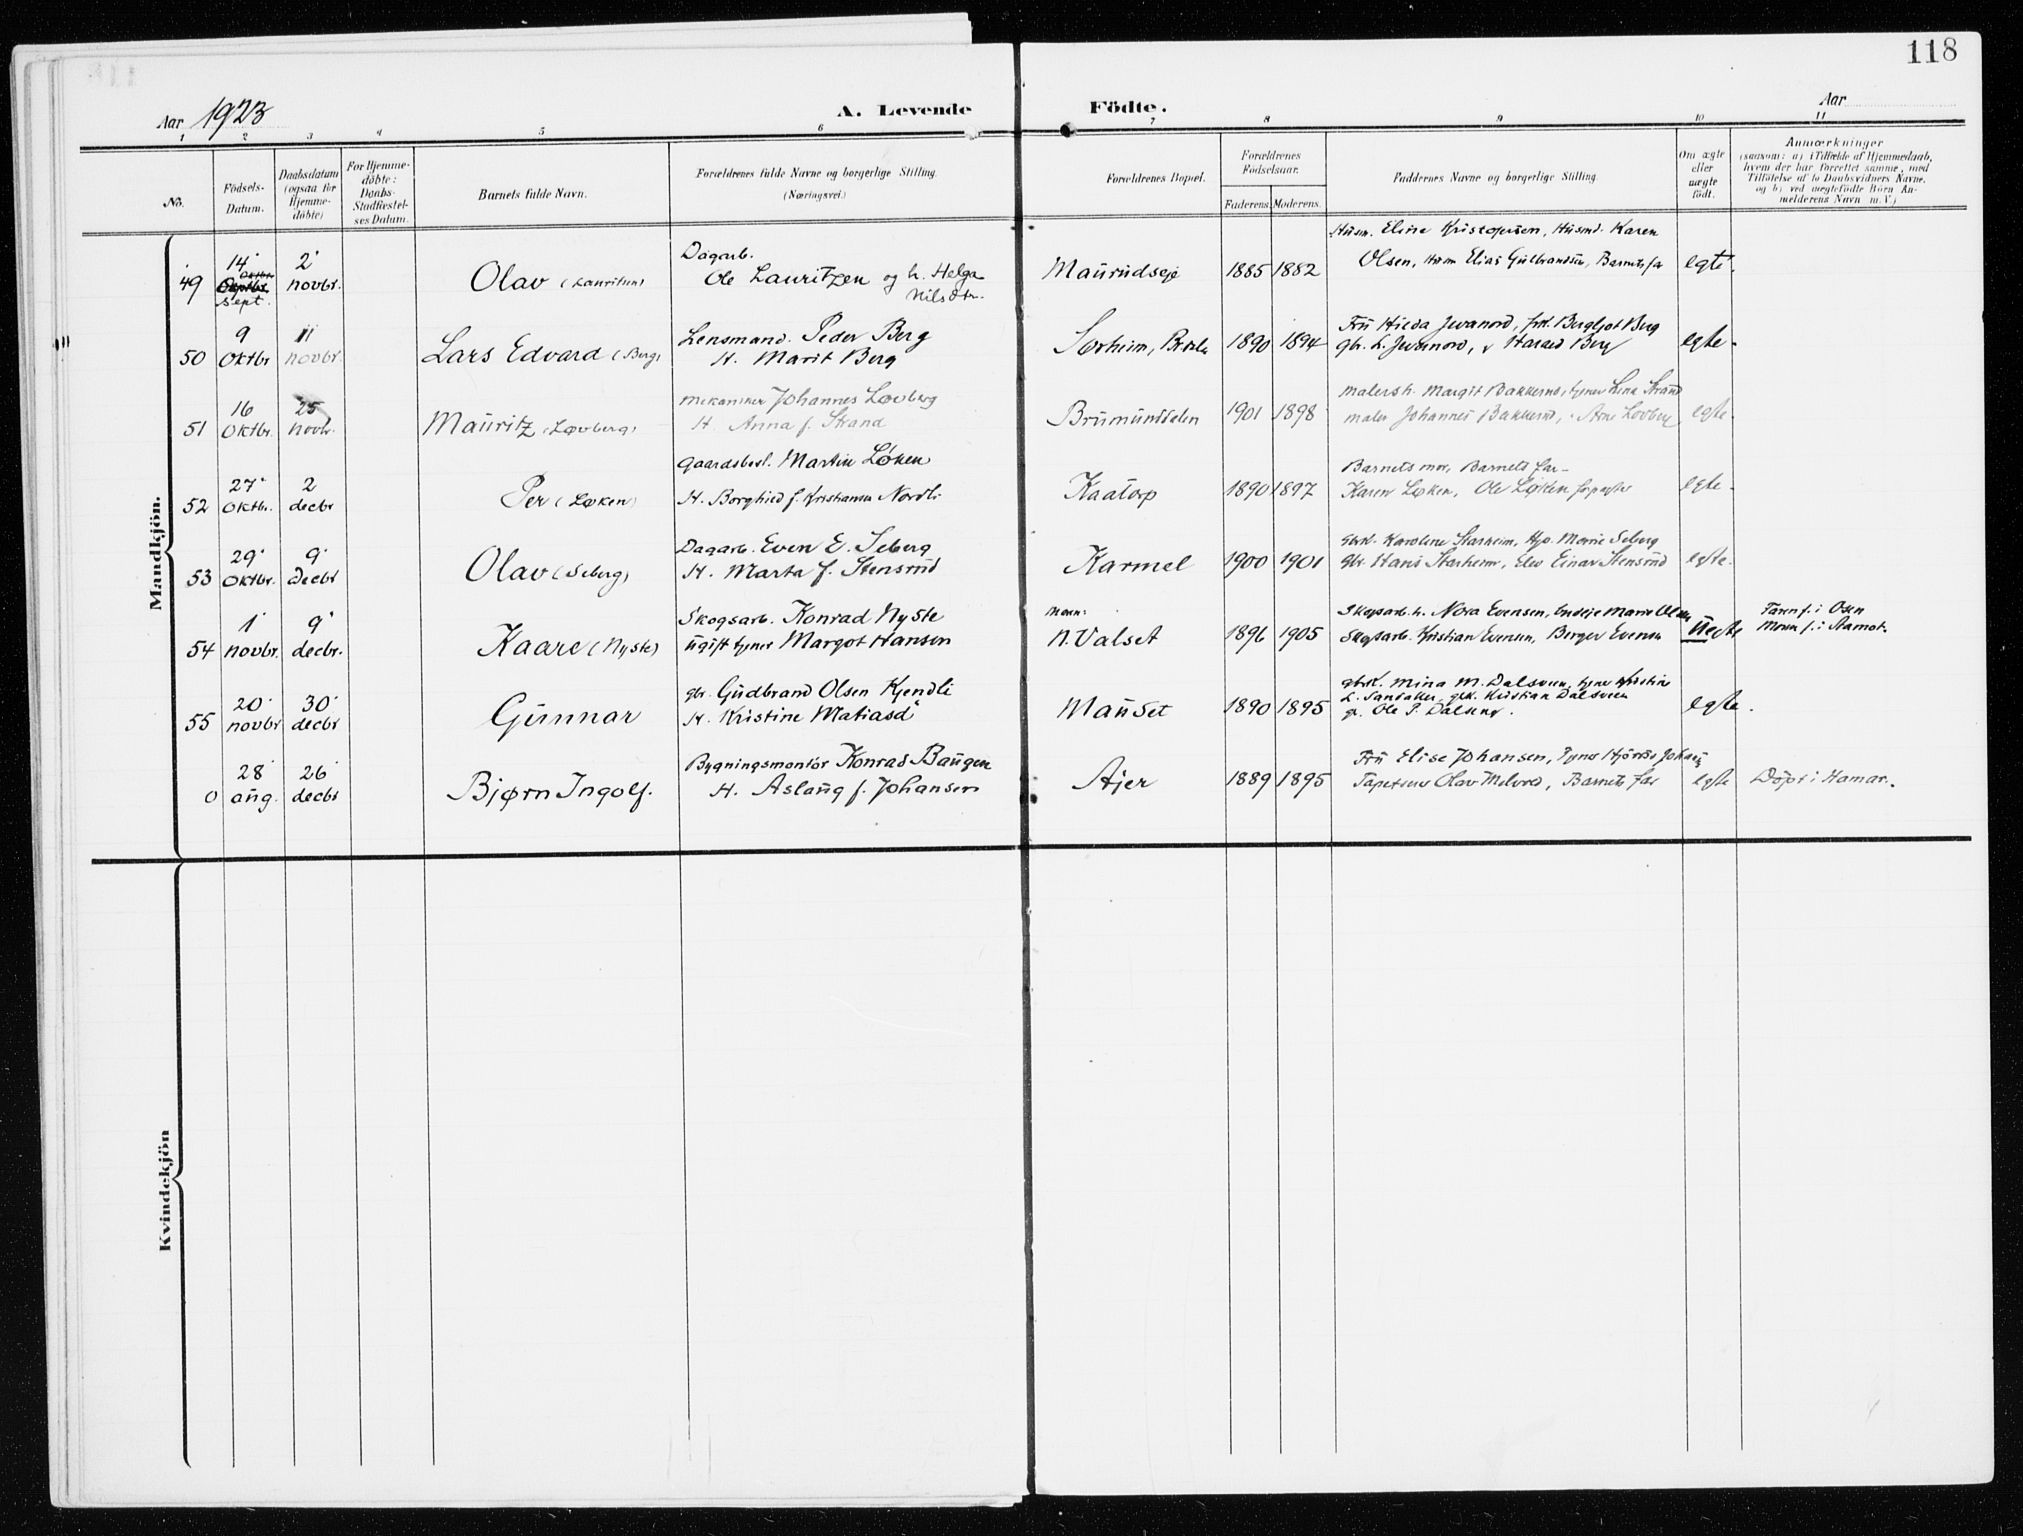 118
Aar 1923
A. Levende Födte.
Aar
1 2 3 4 5 6 7 8 9 10 11
No.
Födsels-
Datum.
Daabsdatum
(ogsaa for
Hjemme-
döbte)
For Hjemme-
döbte:
Daabs-
Stadfæstel-
ses Datum.
Barnets fulde Navn.
Forældrenes fulde Navne og borgerlige Stilling.
(Næringsvei.)
Forældrenes Bopæl.
Forældrenes
Födselsaar.
Faderens. Moderens.
Faddernes Navne og borgerlige Stilling.
Om ægte
eller
uægte
födt.
Anmærkninger
(saasom: a) i Tilfælde af Hjemmedaab,
hvem der har forrettet samme, med
Tilföielse af to Daabsvidners Navne,
og b) ved uægtefödte Börn An-
melderens Navn m. V.)
Mandkjön.
49 14 sept. 2 novbr. Olav (Lauritsen)
Dagarb.
Ole Lauritzen og h. Helga
Nilsdtr.
Maurudseje 1885 1882
Husm. Eline Kristofersen, Husmd. Karen
Olsen, Elias Gulbrandsen, Barnets far
egte.
50 9 oktbr 11 novbr. Lars Edvard (Berg)
Lensmand. Peder Berg
H. Marit Berg
Sørheim, 1890 1894
Fru Hilda Jevanord, frk. Bergljot Berg
gbr. L. Jevanord, Harald Berg
egte.
51 16 oktbr. 25 novbr. Mauritz (Løvberg)
mekaniker Johannes Løvberg
H. Anna f. Strand
Brumunddalen 1901 1898
malersh. Margit Bakkerud, tjener Lina Strand
maler Johannes Bakkerud, Arne Lovberg
egte.
52 27 oktbr. 2 decbr Per (Løken)
Gaardsbest. Martin Løken
H. Borghild f. Kristiansen Nordli
Kaatorp 1890 1897
Barnets mor, Barnets far
Karen Løken, Ole Løken forpagter
egte.
53 29 oktbr. 9 decbr Olav (Seberg)
Dagarb. Even E. Seberg
H. Marta f. Stensrud
Karmel 1900 1901
Karoline Starheim, Hjp. Marie Seberg
gbr. Hans Starheim, Elev Einar Stensrud
egte.
54 1 novbr. 9 decbr. Kaare (Nyste)
Skogsarb. Konrad Nyste
ugift tjener Margot Hansen
Moren:
N. Valset 1896 1905
Skogsarb. h. Nora Evensen, Marie Olsen
Skogsarb. Kristian Evensen, Berger Evensen
Uegte
Faren f. i Osen
Moren f. i Aamot.
55 20 novbr 30 decbr Gunnar
gbr. Gudbrand Olsen Kjendli
H. Kristine Matiasd
Mauset 1890 1895
gbrk. Mina M. Dalsveen, tjener Kristine
L. Sandaker, gbk. Kristian Dalsveen
Ole P. Dalsveen.
egte.
0 28 aug. 26 decbr Bjørn Ingolf.
Bygningsmontör Konrad Baugen
H. Aslaug f. Johansen
Ajer 1889 1895
Fru Elise Johansen, Tjener Hjördis Johansen
Tapetserer Olav Melvold, Barnets far
egte
Döpt i Hamar.
Kvindekjön